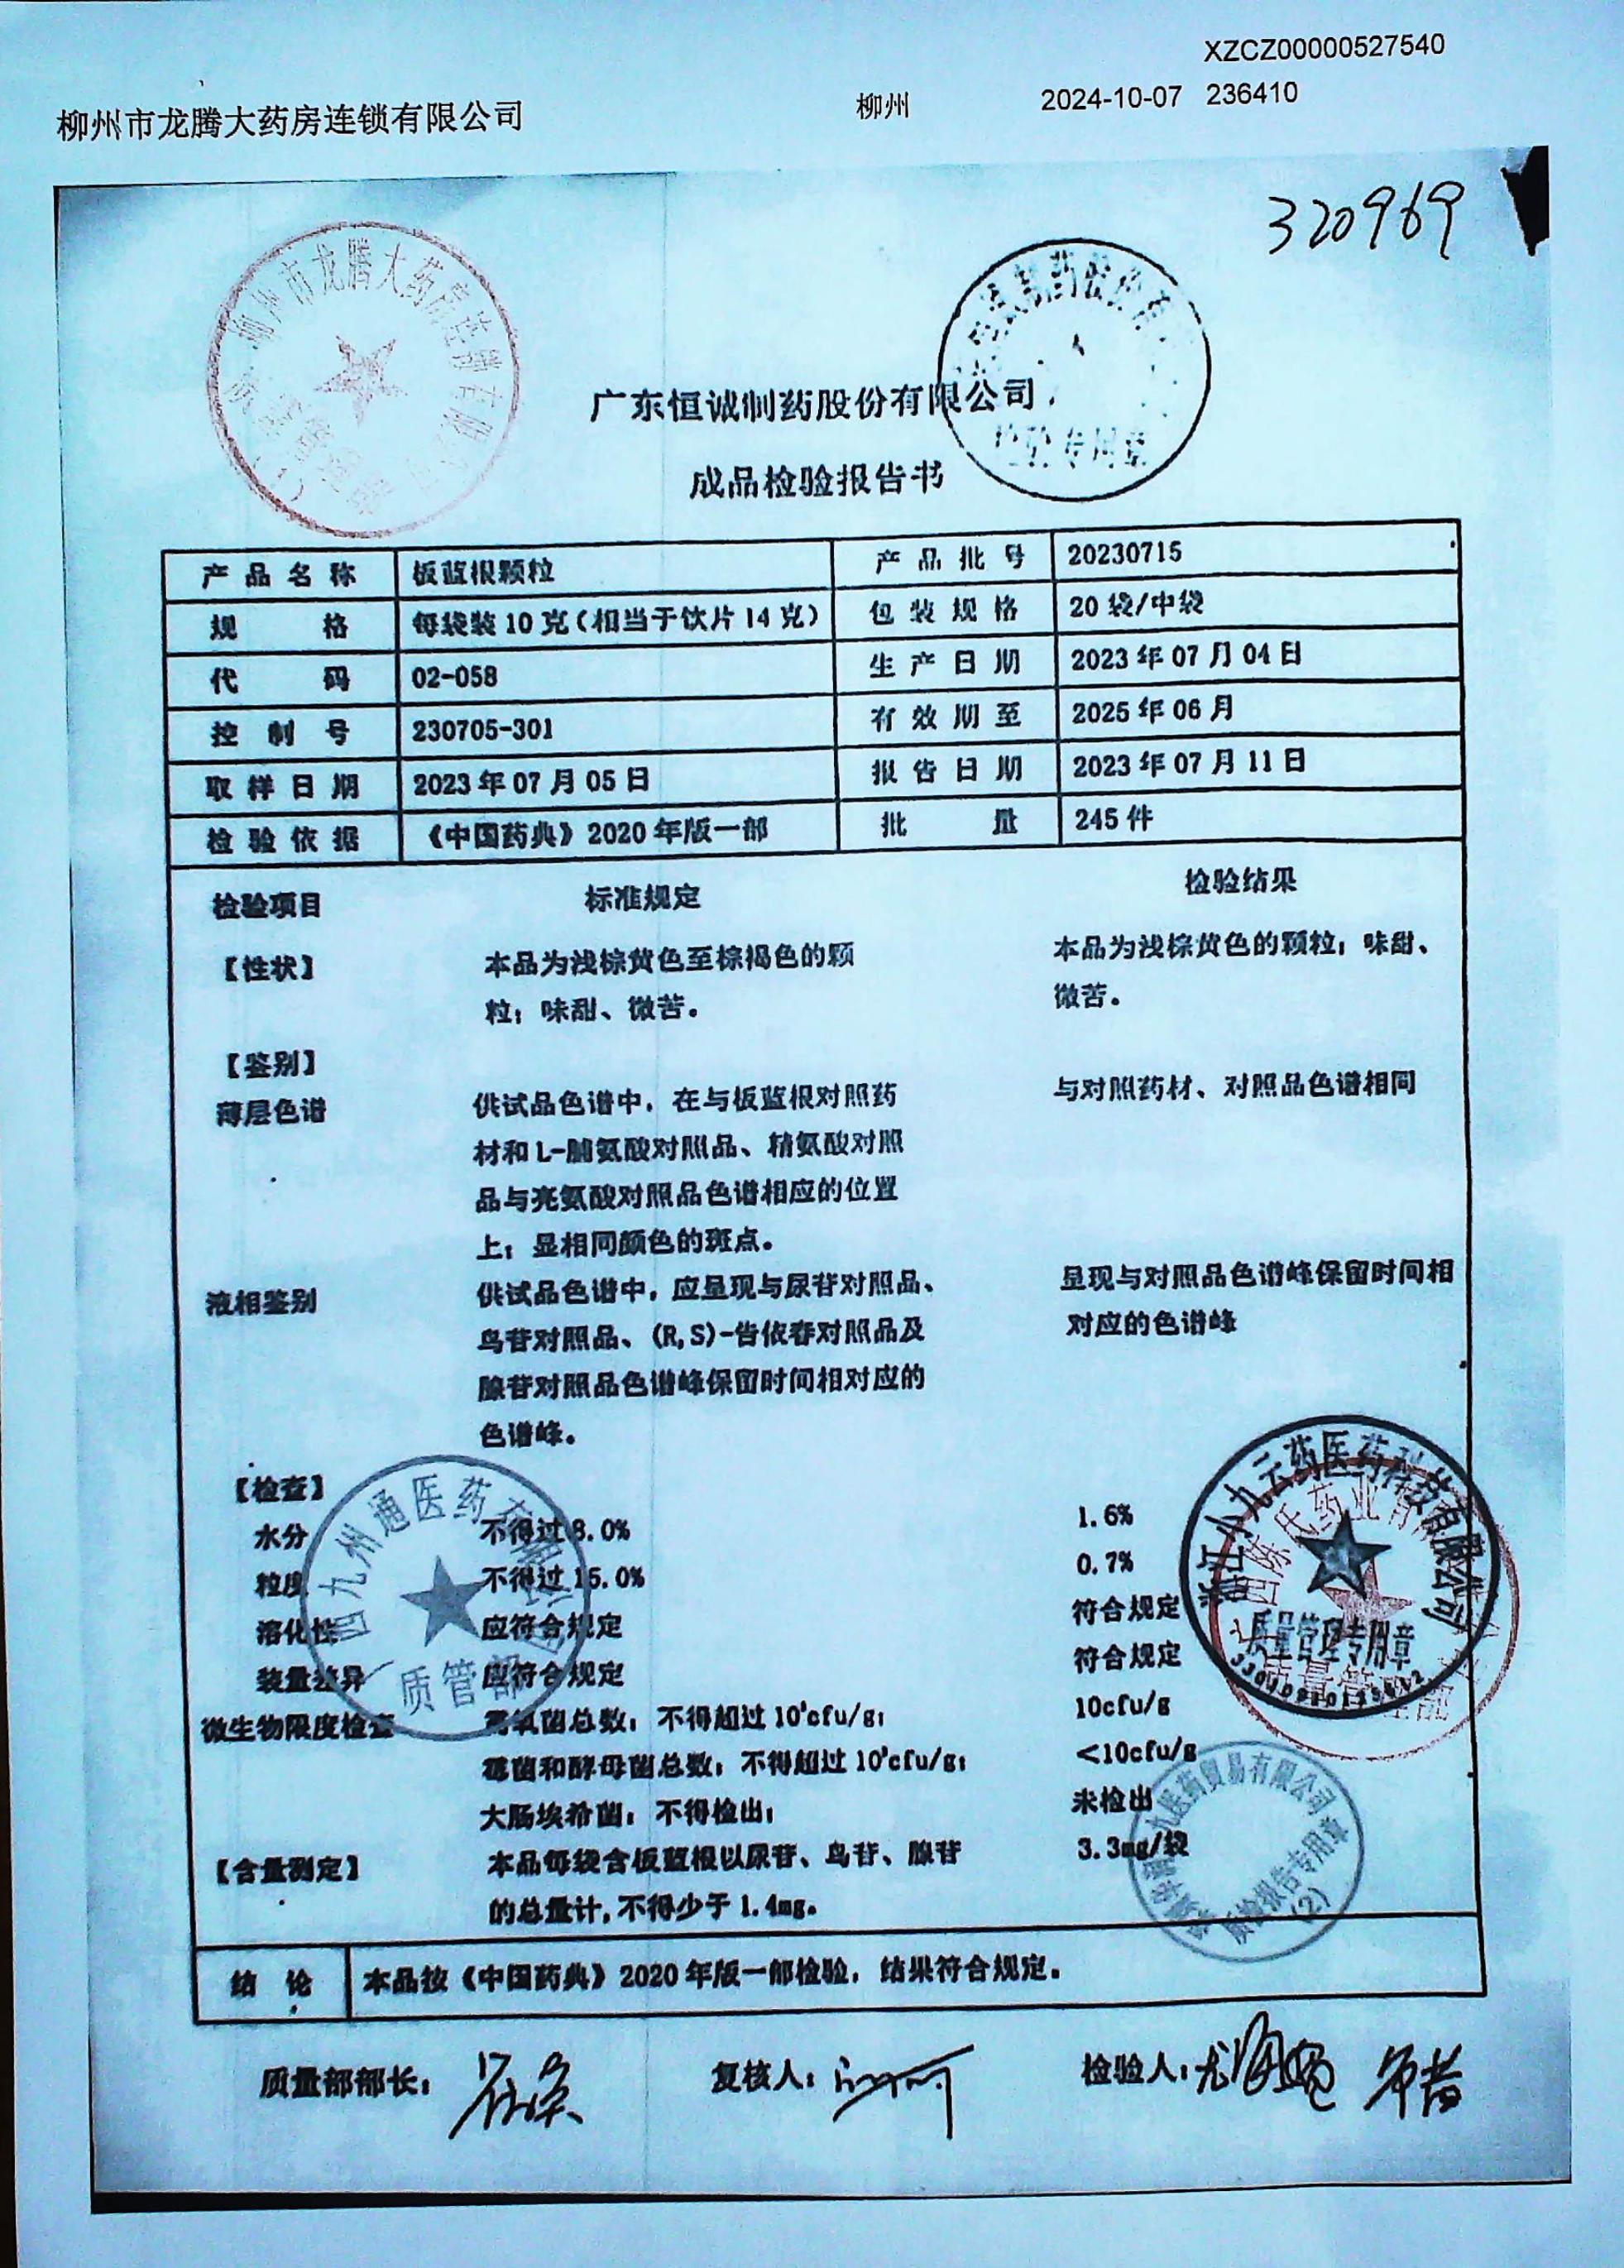 XZCZ00000527540
柳州市龙腾大药房连锁有限公司 柳州 2024-10-07 236410
320969
柳州市龙腾大药房连锁有限公司
检验专用章
广东恒诚制药股份有限公司
成品检验报告书
产品名称 板蓝根颗粒 产品批号 20230715
规格 每袋装10克(相当于饮片14克) 包装规格 20袋/中袋
代码 02-058 生产日期 2023年07月04日
控制号 230705-301 有效期至 2025年06月
取样日期 2023年07月05日 报告日期 2023年07月11日
检验依据 《中国药典》2020年版一部 批量 245件
检验项目 标准规定 检验结果
【性状】 本品为浅棕黄色至棕褐色的颗 本品为浅棕黄色的颗粒;味甜、
粒;味甜、微苦。 微苦。
【鉴别】
薄层色谱 供试品色谱中,在与板蓝根对照药 与对照药材、对照品色谱相同
材和L-脯氨酸对照品、精氨酸对照
品与亮氨酸对照品色谱相应的位置
上;显相同颜色的斑点。
液相鉴别 供试品色谱中,应呈现与尿苷对照品、 呈现与对照品色谱峰保留时间相
鸟苷对照品、(R,S)-告依春对照品及 对应的色谱峰
腺苷对照品色谱峰保留时间相对应的
色谱峰。
【检查】
水分 不得过8.0% 1.6%
粒度 不得过15.0% 0.7%
溶化性 应符合规定 符合规定
装量差异 应符合规定 符合规定
微生物限度检查 需氧菌总数:不得超过10³cfu/g; 10cfu/g
霉菌和酵母菌总数:不得超过10²cfu/g; <10cfu/g
大肠埃希菌:不得检出; 未检出
【含量测定】 本品每袋含板蓝根以尿苷、鸟苷、腺苷 3.3mg/袋
的总量计,不得少于1.4mg。
九州通医药
质管部
浙江小九云药医药科技有限公司
质量管理专用章
陈氏药业有
质量管理部
九医药贸易有限公司
质检报告专用章
(2)
结论 本品按《中国药典》2020年版一部检验,结果符合规定。
质量部部长: 复核人: 检验人: